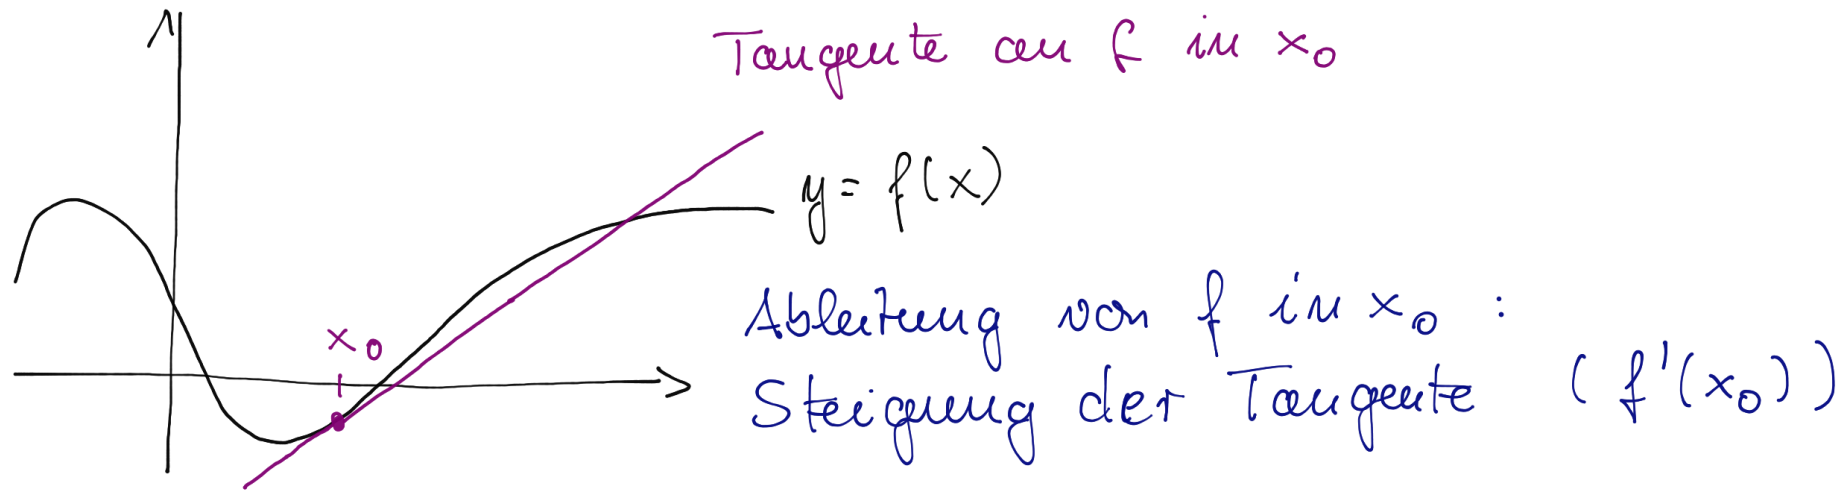 Tangente an f in x₀
y = f(x)
x₀
Ableitung von f in x₀ :
Steigung der Tangente (f'(x₀))